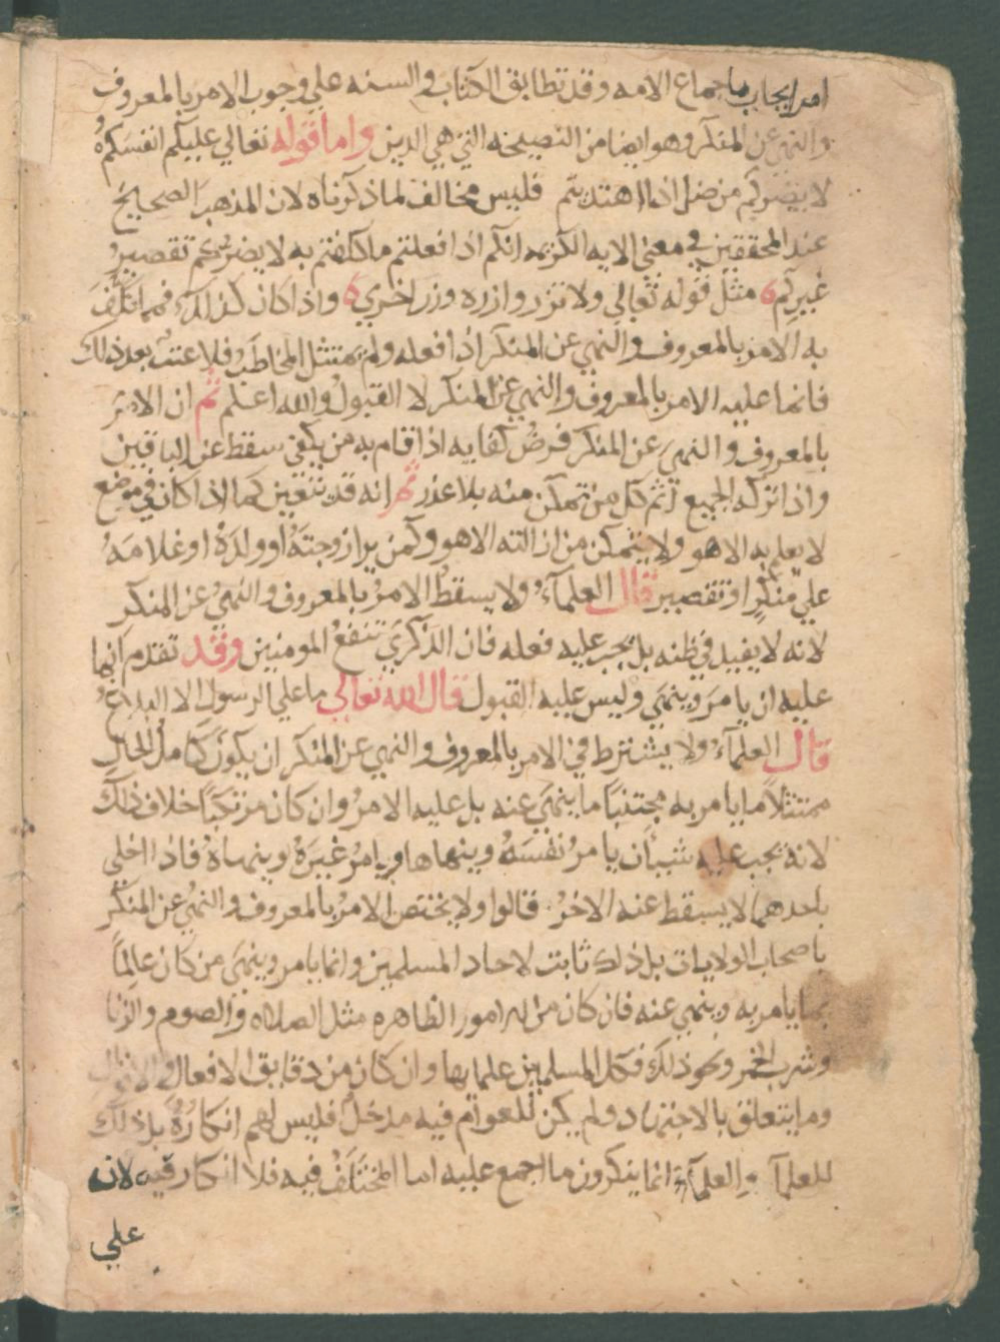 امر ايجاب باجماع الامه وقد تطابق الكتاب والسنه علي وجوب الامر بالمعروف
والنهي عن المنكر وهو ايضا من النصيحه التي هي الدين واما قوله تعالي عليكم انفسكم
لا يضركم من ضل اذا اهتديتم فليس مخالف لما ذكرناه لان المذهب الصحيح
عند المحققين في معني الايه الكريمه انكم اذا فعلتم ما كلفتم به لا يضركم تقصير
غيركم مثل قوله تعالي ولا تزر وازره وزر اخري واذا كان كذلك فمما كلف
به الامر بالمعروف والنهي عن المنكر اذا فعله ولم يمتثل المخاطب فلا عتب بعد ذلك
فانما عليه الامر بالمعروف والنهي عن المنكر لا القبول والله اعلم ثم ان الامر
بالمعروف والنهي عن المنكر فرض كفايه اذا قام به من يكفي سقط عن الباقين
واذا تركه الجميع اثم كل من تمكن منه بلا عذر ثم انه قد تتعين كما اذا كان في موضع
لا يعلم به الا هو ولا يتمكن من ازالته الا هو وكمن يرا زوجته او ولده او غلامه
علي منكر او تقصير قال العلمآء ولا يسقط الامر بالمعروف والنهي عن المنكر
لانه لا يفيد في ظنه بل يجب عليه فعله فان الذكري تنفع المومنين وقد تقدم انما
عليه ان يامر وينهي وليس عليه القبول قال الله تعالي ما علي الرسول الا البلاغ
قال العلمآء ولا يشترط في الامر بالمعروف والنهي عن المنكر ان يكون كامل الحال
ممتثلاً ما يامر به مجتنباً ما ينهي عنه بل عليه الامر وان كان مرتكباً خلاف ذلك
لانه يجب عليه شيان يامر نفسه وينهاها ويامر غيره وينهاه فاذا اخلي
باحدهما لا يسقط عنه الاخر قالوا ولا يختص الامر بالمعروف والنهي عن المنكر
باصحاب الولايات بل ذلك ثابت لاحاد المسلمين وانما يامر وينهي من كان عالماً
بما يامر به وينهي عنه فان كان من الامور الظاهره مثل الصلاه والصوم والزنا
وشرب الخمر ونحو ذلك فكل المسلمين علما بها وان كان من دقايق الافعال والاقوال
وما يتعلق بالاجتهاد ولم يكن للعوام فيه مدخل فليس لهم انكاره بل ذلك
للعلمآ والعلمآء انما ينكرون ما اجمع عليه اما المختلف فيه فلا انكار فيه لان
علي